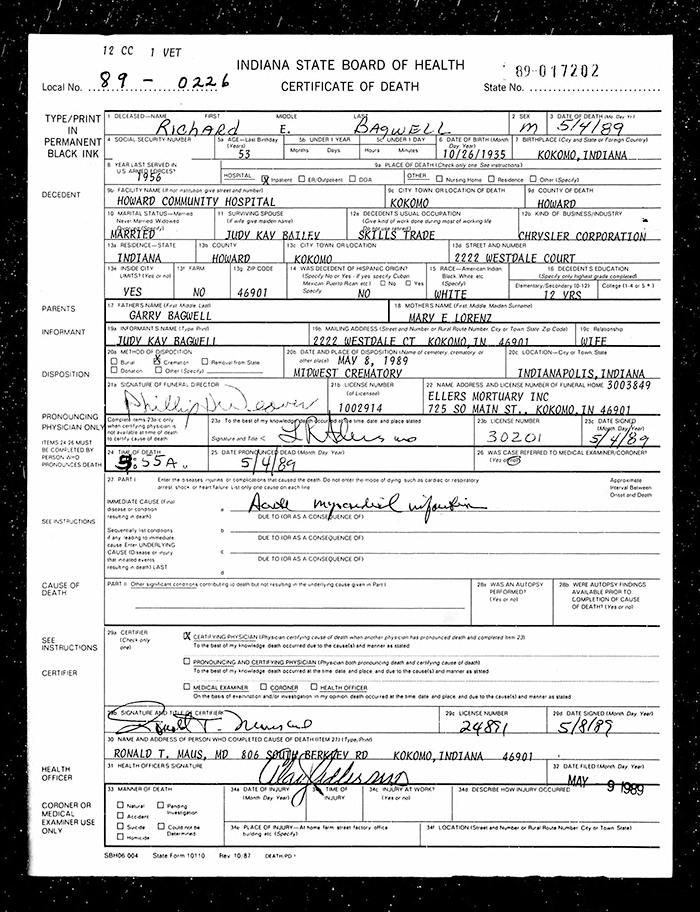 12 CC 1 VET
INDIANA STATE BOARD OF HEALTH
CERTIFICATE OF DEATH
Local No. 89 - 0226
State No. 89-017202
TYPE/PRINT IN PERMANENT BLACK INK
1 DECEASED—NAME FIRST MIDDLE LAST
RICHARD E. BAGWELL
2 SEX
M
3 DATE OF DEATH (Mo Day Yr)
5/4/89
4 SOCIAL SECURITY NUMBER
5a AGE—Last Birthday (Years)
53
5b UNDER 1 YEAR
Months Days
5c UNDER 1 DAY
Hours Minutes
6 DATE OF BIRTH (Month Day Year)
10/26/1935
7 BIRTHPLACE (City and State or Foreign Country)
KOKOMO, INDIANA
8 YEAR LAST SERVED IN U.S. ARMED FORCES?
1956
9a PLACE OF DEATH (Check only one See instructions)
HOSPITAL X Inpatient ER/Outpatient DOA
OTHER Nursing Home Residence Other (Specify)
DECEDENT
9b FACILITY NAME (If not institution give street and number)
HOWARD COMMUNITY HOSPITAL
9c CITY TOWN OR LOCATION OF DEATH
KOKOMO
9d COUNTY OF DEATH
HOWARD
10 MARITAL STATUS—Married Never Married Widowed Divorced (Specify)
MARRIED
11 SURVIVING SPOUSE (If wife give maiden name)
JUDY KAY BAILEY
12a DECEDENT'S USUAL OCCUPATION
(Give kind of work done during most of working life Do not use retired)
SKILLS TRADE
12b KIND OF BUSINESS/INDUSTRY
CHRYSLER CORPORATION
13a RESIDENCE—STATE
INDIANA
13b COUNTY
HOWARD
13c CITY TOWN OR LOCATION
KOKOMO
13d STREET AND NUMBER
2222 WESTDALE COURT
13e INSIDE CITY LIMITS? (Yes or no)
YES
13f FARM
NO
13g ZIP CODE
46901
14 WAS DECEDENT OF HISPANIC ORIGIN?
(Specify No or Yes - If yes specify Cuban Mexican Puerto Rican etc) No Yes
Specify NO
15 RACE—American Indian Black White etc (Specify)
WHITE
16 DECEDENT'S EDUCATION
(Specify only highest grade completed)
Elementary/Secondary (0-12) College (1-4 or 5+)
12 YRS
PARENTS
17 FATHER'S NAME (First Middle Last)
GARRY BAGWELL
18 MOTHER'S NAME (First Middle Maiden Surname)
MARY E LORENZ
INFORMANT
19a INFORMANT'S NAME (Type Print)
JUDY KAY BAGWELL
19b MAILING ADDRESS (Street and Number or Rural Route Number City or Town State Zip Code)
2222 WESTDALE CT KOKOMO, IN 46901
19c Relationship
WIFE
DISPOSITION
20a METHOD OF DISPOSITION
Burial X Cremation Removal from State
Donation Other (Specify)
20b DATE AND PLACE OF DISPOSITION (Name of cemetery crematory or other place)
MAY 8, 1989
MIDWEST CREMATORY
20c LOCATION—City or Town State
INDIANAPOLIS, INDIANA
21a SIGNATURE OF FUNERAL DIRECTOR
21b LICENSE NUMBER (of Licensee)
1002914
22 NAME ADDRESS AND LICENSE NUMBER OF FUNERAL HOME 3003849
ELLERS MORTUARY INC
725 SO MAIN ST., KOKOMO, IN 46901
PRONOUNCING PHYSICIAN ONLY
ITEMS 24-26 MUST BE COMPLETED BY PERSON WHO PRONOUNCES DEATH
Complete items 23a-c only when certifying physician is not available at time of death to certify cause of death
23a To the best of my knowledge death occurred at the time date and place stated
Signature and Title
23b LICENSE NUMBER
30201
23c DATE SIGNED (Month Day Year)
5/4/89
24 TIME OF DEATH
3:55A.
25 DATE PRONOUNCED DEAD (Month Day Year)
5/4/89
26 WAS CASE REFERRED TO MEDICAL EXAMINER/CORONER?
(Yes or no)
27 PART I Enter the diseases injuries or complications that caused the death. Do not enter the mode of dying, such as cardiac or respiratory
arrest shock or heart failure List only one cause on each line
Approximate Interval Between Onset and Death
SEE INSTRUCTIONS
IMMEDIATE CAUSE (Final disease or condition resulting in death)
a Acute myocardial infarction
DUE TO (OR AS A CONSEQUENCE OF)
Sequentially list conditions if any leading to immediate cause Enter UNDERLYING CAUSE (Disease or injury that initiated events resulting in death) LAST
b
DUE TO (OR AS A CONSEQUENCE OF)
c
DUE TO (OR AS A CONSEQUENCE OF)
d
CAUSE OF DEATH
PART II Other significant conditions contributing to death but not resulting in the underlying cause given in Part I
28a WAS AN AUTOPSY PERFORMED? (Yes or no)
28b WERE AUTOPSY FINDINGS AVAILABLE PRIOR TO COMPLETION OF CAUSE OF DEATH? (Yes or no)
SEE INSTRUCTIONS
CERTIFIER
29a CERTIFIER (Check only one)
X CERTIFYING PHYSICIAN (Physician certifying cause of death when another physician has pronounced death and completed Item 23)
To the best of my knowledge death occurred due to the cause(s) and manner as stated
PRONOUNCING AND CERTIFYING PHYSICIAN (Physician both pronouncing death and certifying cause of death)
To the best of my knowledge death occurred at the time date and place and due to the cause(s) and manner as stated
MEDICAL EXAMINER CORONER HEALTH OFFICER
On the basis of examination and/or investigation in my opinion death occurred at the time date and place and due to the cause(s) and manner as stated
29b SIGNATURE AND TITLE OF CERTIFIER
29c LICENSE NUMBER
24891
29d DATE SIGNED (Month Day Year)
5/8/89
30 NAME AND ADDRESS OF PERSON WHO COMPLETED CAUSE OF DEATH (ITEM 27) (Type/Print)
RONALD T. MAUS, MD 806 SOUTH BERKLEY RD KOKOMO, INDIANA 46901
HEALTH OFFICER
31 HEALTH OFFICER'S SIGNATURE
32 DATE FILED (Month Day Year)
MAY 9 1989
CORONER OR MEDICAL EXAMINER USE ONLY
33 MANNER OF DEATH
Natural Pending Investigation
Accident
Suicide Could not be Determined
Homicide
34a DATE OF INJURY (Month Day Year)
34b TIME OF INJURY
34c INJURY AT WORK? (Yes or no)
34d DESCRIBE HOW INJURY OCCURRED
34e PLACE OF INJURY—At home farm street factory office building etc (Specify)
34f LOCATION (Street and Number or Rural Route Number City or Town State)
SBH06 004 State Form 10110 Rev 10/87 DEATH/PD 1